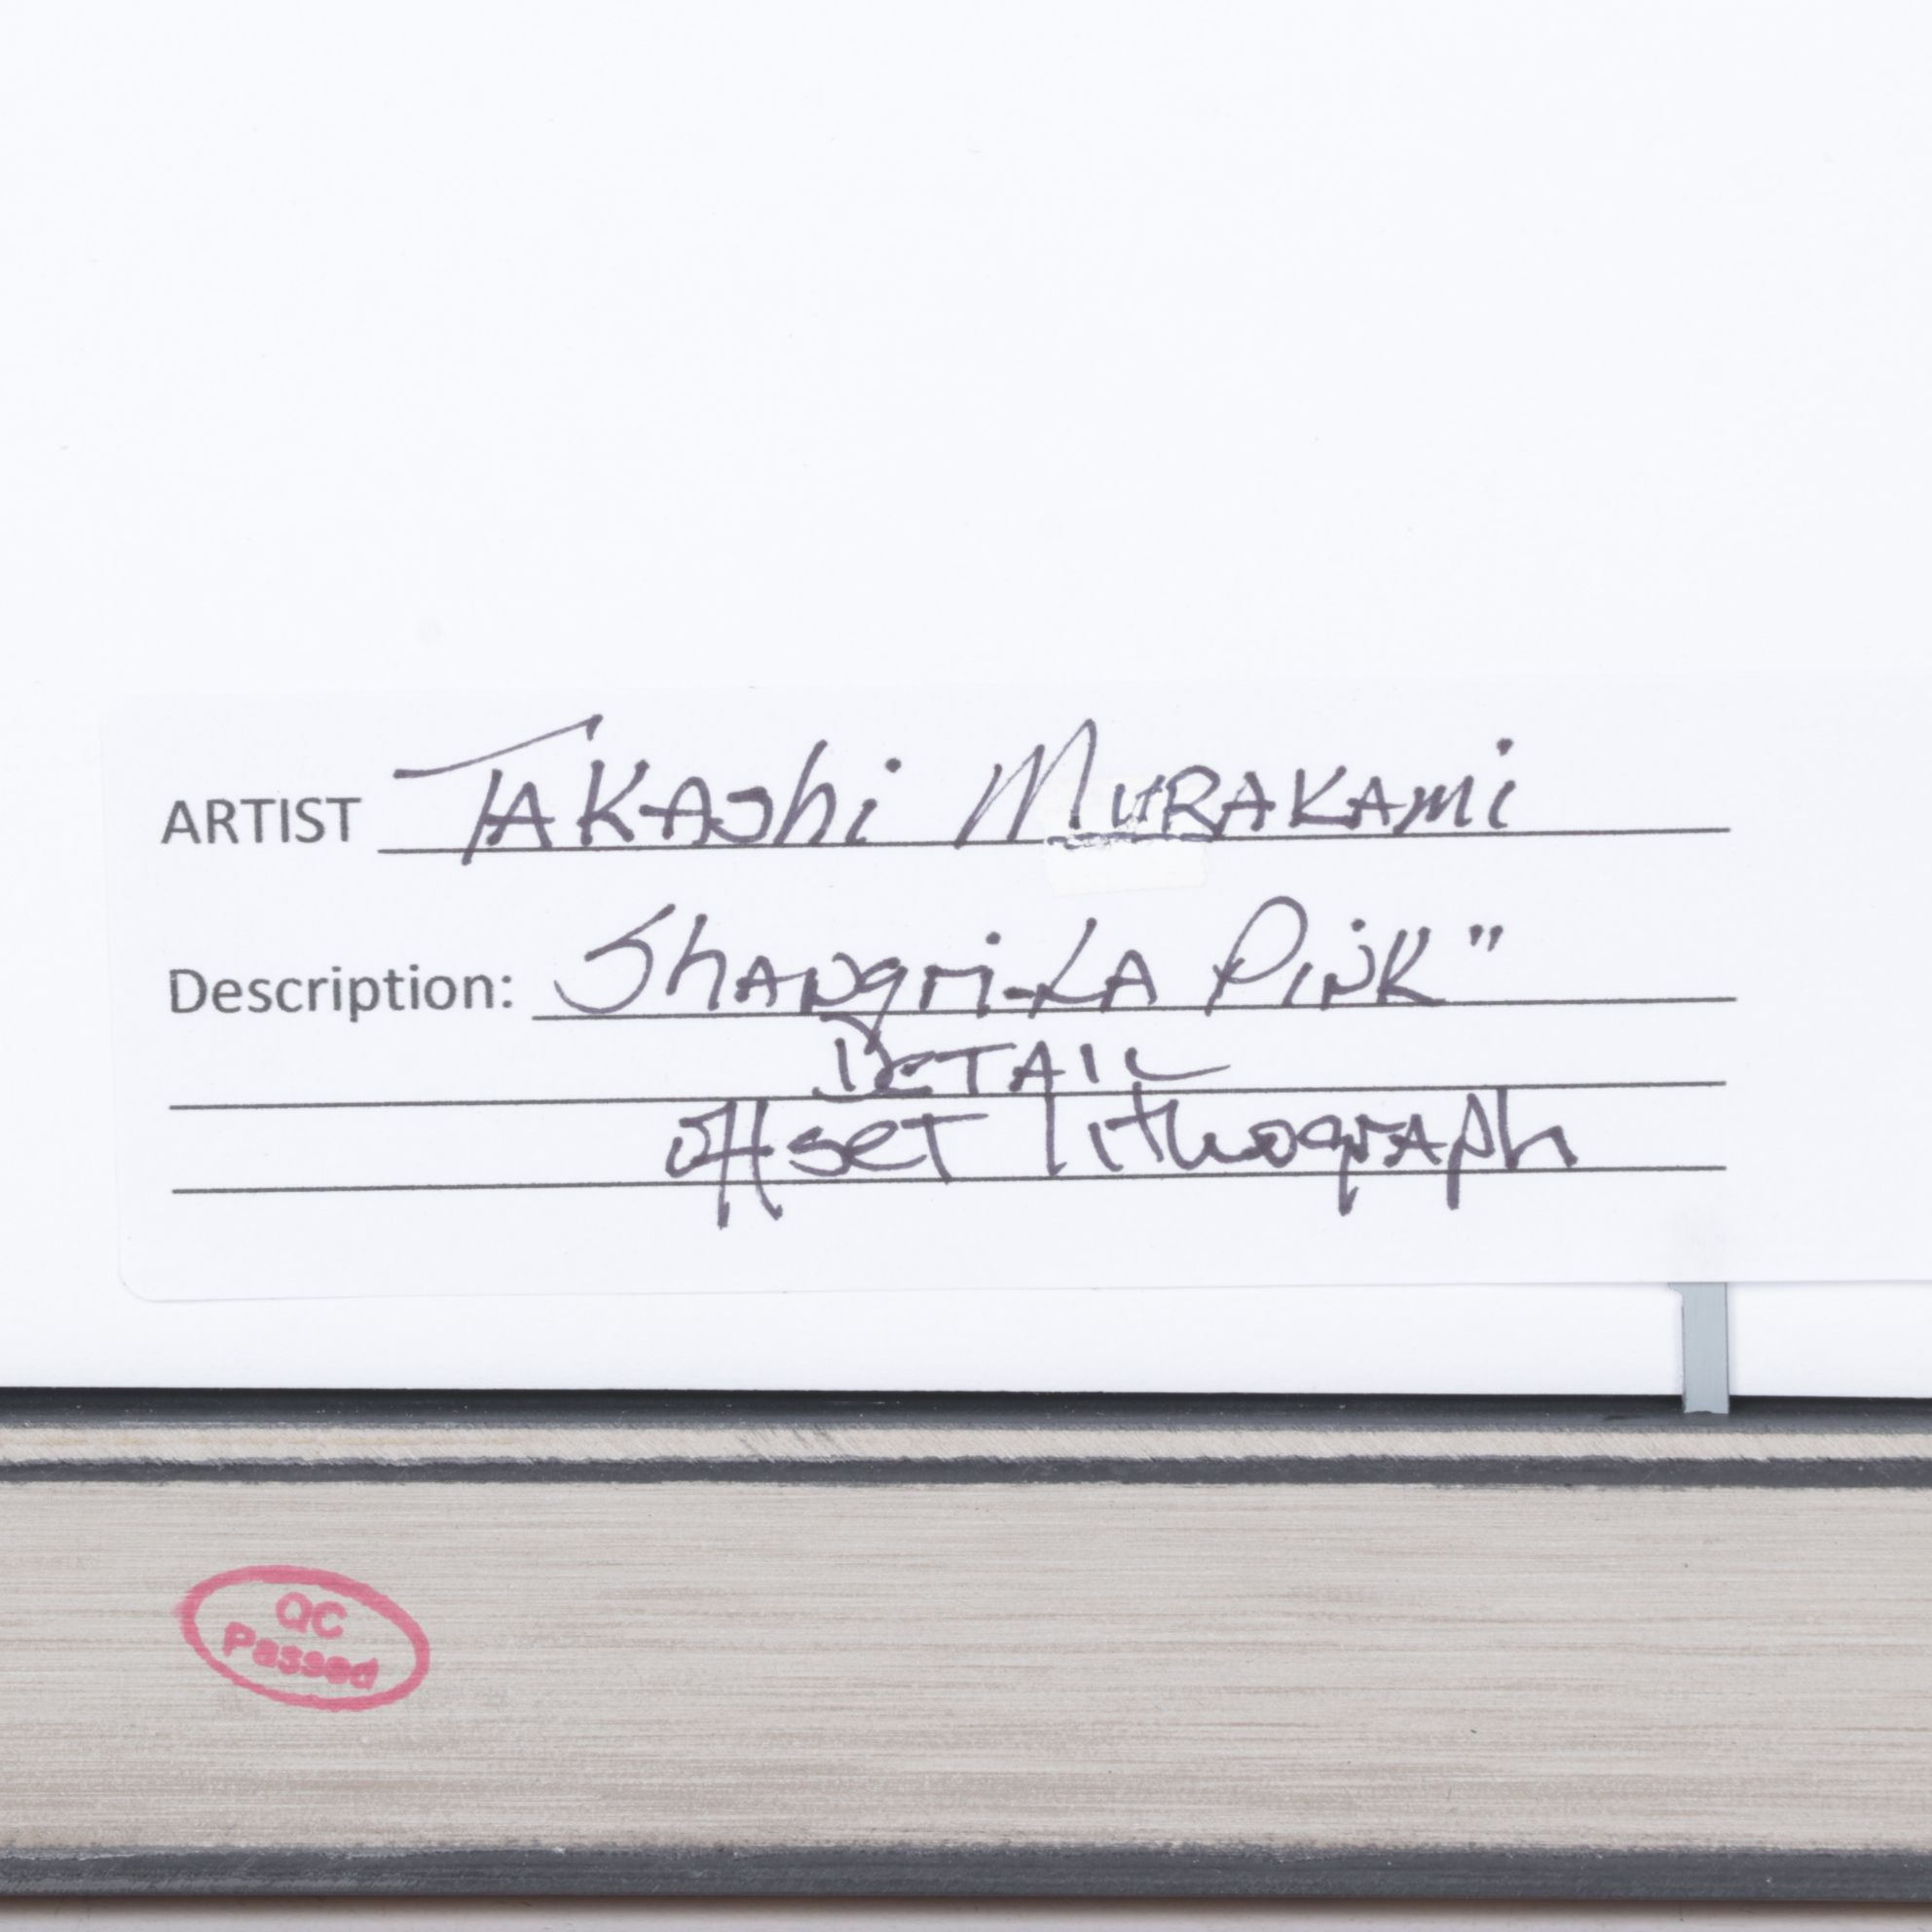 ARTIST TAKAShi MURAKAMi
Description: ShANgri-LA PiNK"
DETAIL
offset lithogRAph
QC
Passed